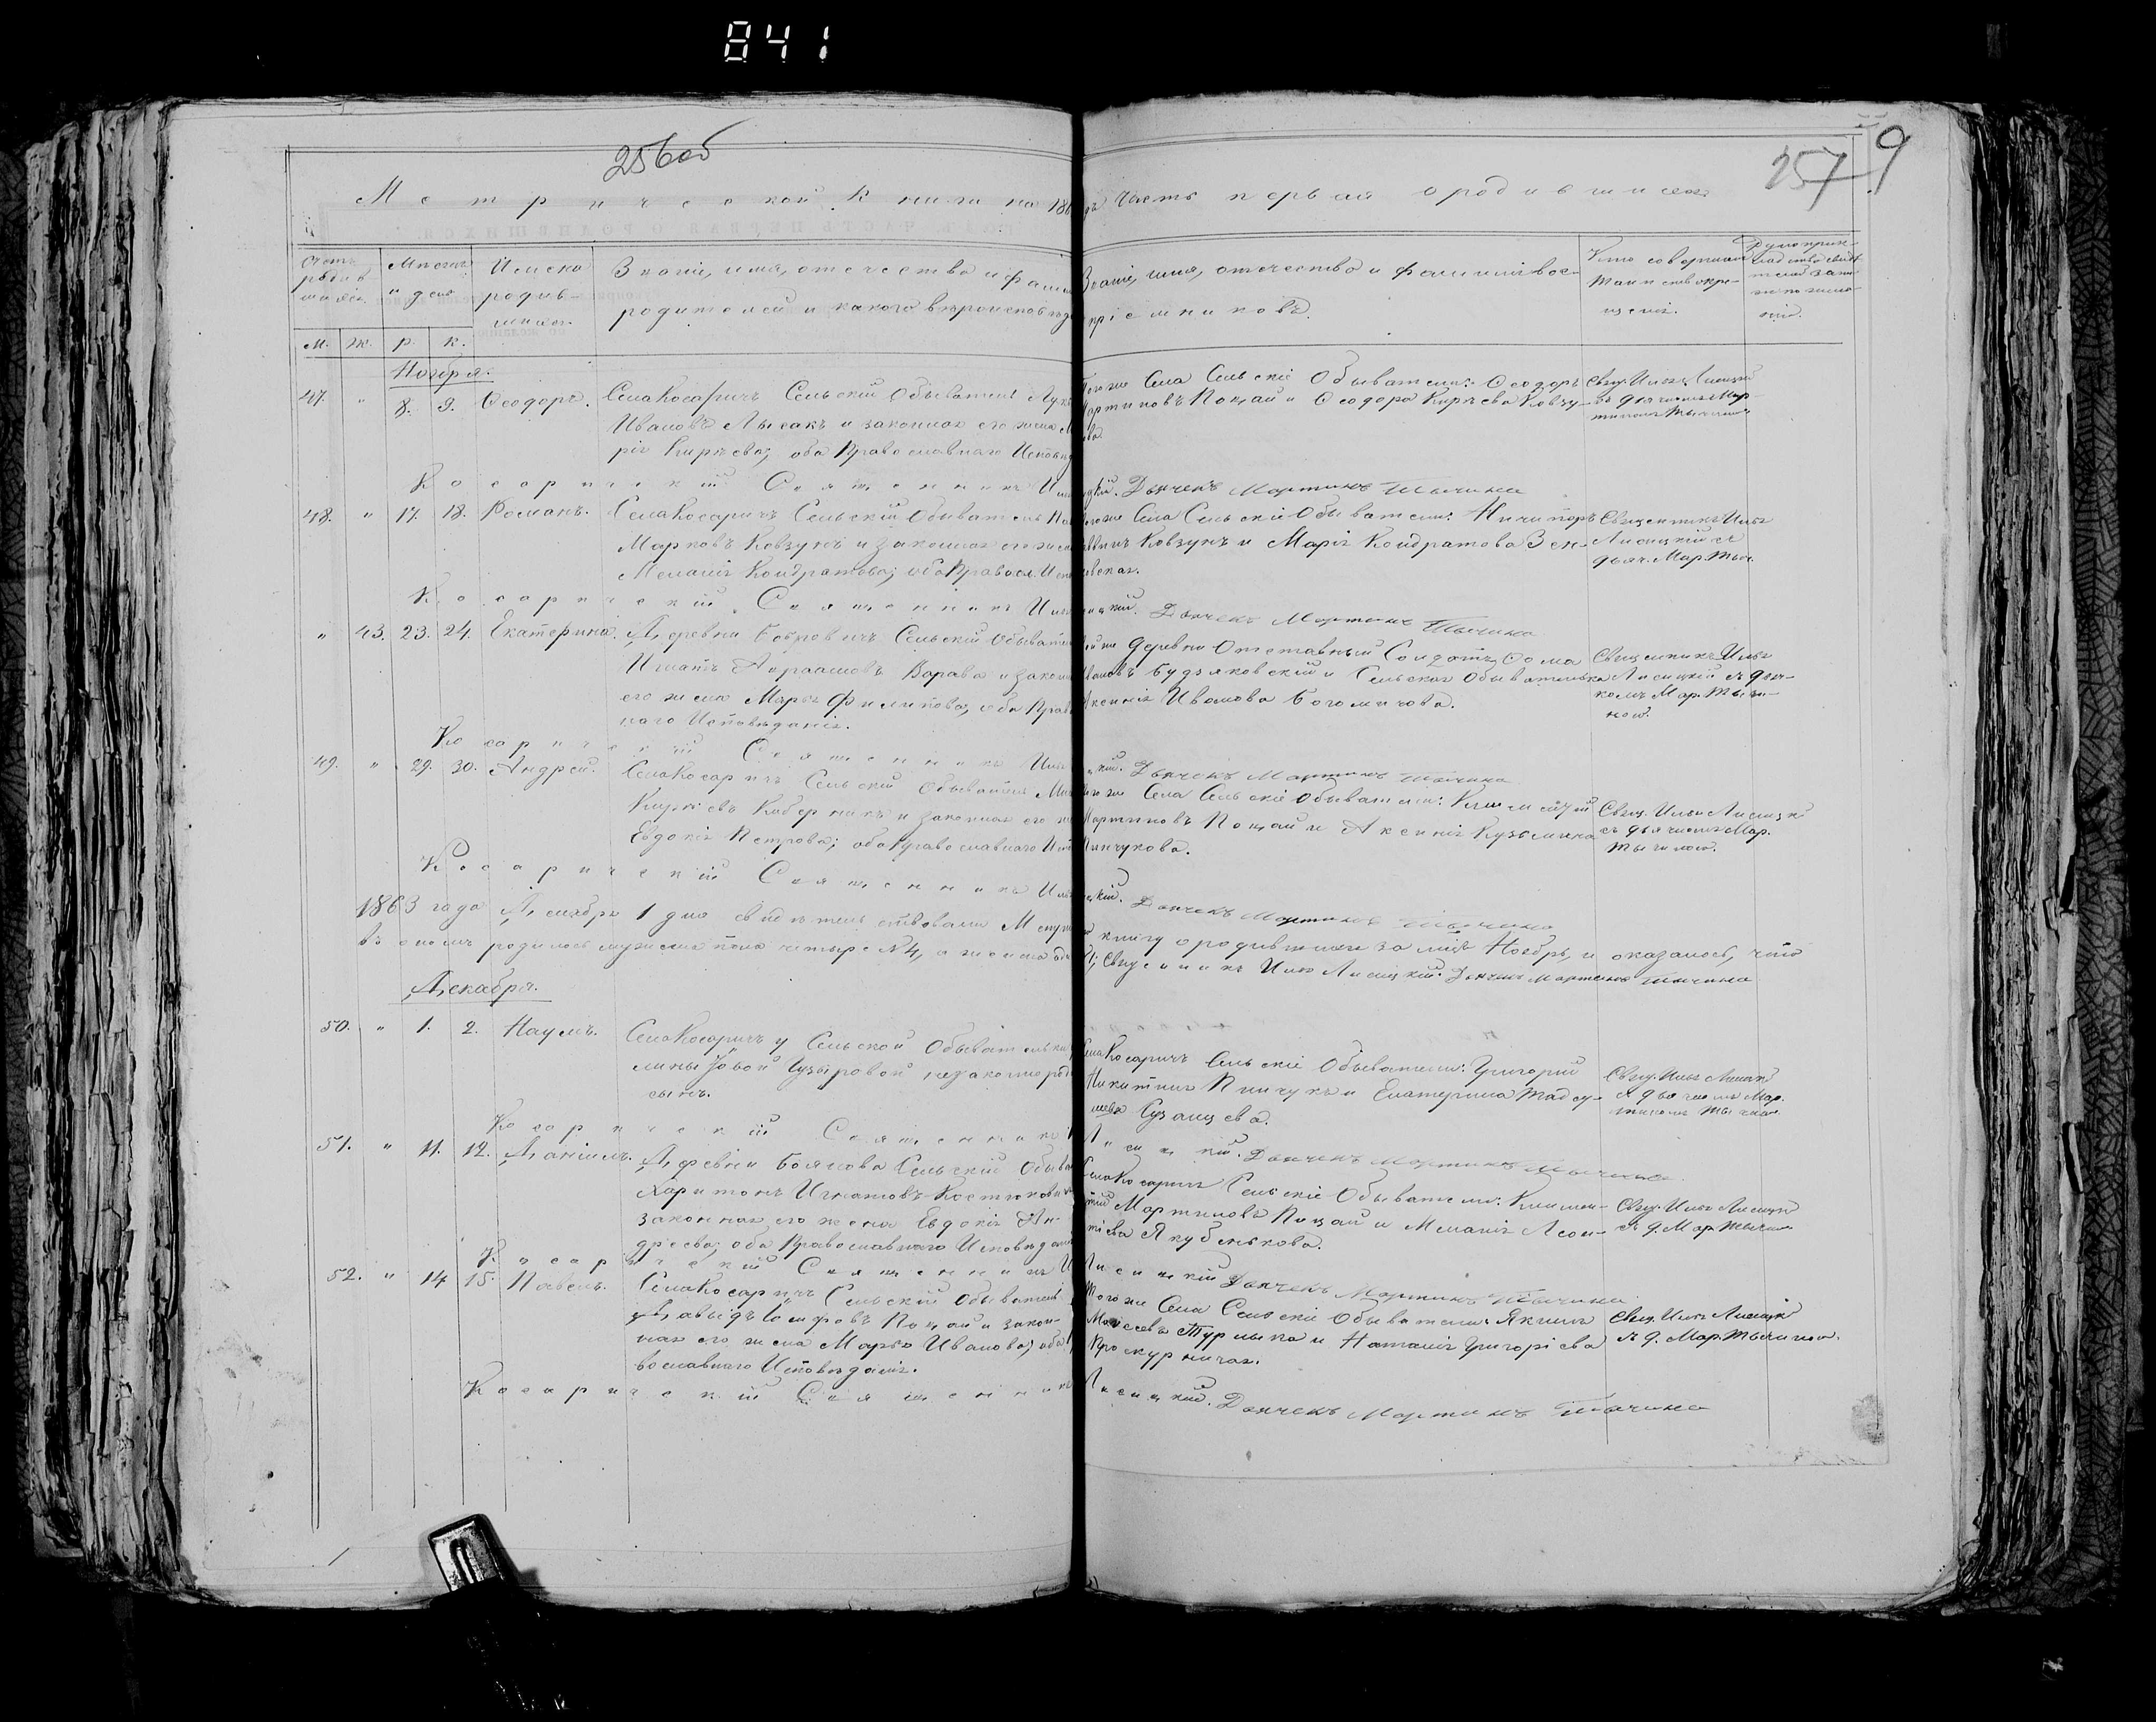 841
256об
257
9
Метрической Книги на 186
Часть первая о родившихся
Счетъ родившихся
Мѣсяцъ и день
Имена родившихся
Званіе, имя, отечество и фами
родителей и какого вѣроисповѣд
Званіе, имя, отечество и фамилія вос-
пріемниковъ.
Кто совершалъ
таинство кре-
щенія.
М. Ж. р. к.
Ноября.
47. " 8. 9. Ѳеодоръ. Села Косаричъ Сельскій Обыватель Лук
Ивановъ Лысакъ и законная его жена М
рія Кирѣева; оба Православнаго Исповѣд
Села Сельскіе Обыватели: Ѳеодоръ
Мартиновъ Поцай и Ѳеодора Кирѣева Ковзу-
ва.
Свящ. Илья Лисицкій
съ дьячкомъ Мар-
Косаричскій Священникъ Ил
Дьячекъ Мартинъ Тычина
48. " 17. 18. Романъ. Села Косаричъ Сельскій Обыватель Па
Марковъ Ковзунъ и законная его жена
Меланія Кондратова; оба Правосл. Исп
Села Сельскіе Обыватели: Ничипоръ
Ковзунъ и Марія Кондратова Зен-
Священникъ Илья
Лисицкій съ
дьяч. Мар. Тыч.
Косаричскій Священникъ Иль
Дьячекъ Мартинъ Тычина
" 43. 23. 24. Екатерина. Деревни Бобровичъ Сельскій Обывате
Игнатъ Авраамовъ Варава и законн
его жена Марья Филипова, оба Прав
наго Исповѣданія.
деревни Отставный Солдатъ Ѳома
Ивановъ Будзяковскій и Сельская Обывателька
Аксинія Иванова Богомичова.
Священникъ Илья
Лисицкій съ дья-
комъ Мар. Тычи-
ной.
Косаричскій Священникъ Иль
Дьячекъ Мартинъ Тычина
49. " 29. 30. Андрей. Села Косаричъ Сельскій Обыватель Ми
Кирѣевъ Каберникъ и законная его ж
Евдокія Петрова; оба Православнаго Исп
Села Сельскіе Обыватели: Климентій
Мартиновъ Поцай и Аксинія Кузьмина
Пинчукова.
Свящ. Илья Лисицкі
съ дьячкомъ Мар.
Тычиною.
Косаричскій Священникъ Иль
Дьячекъ Мартинъ Тычина
1863 года Декабря 1 дня свидѣтельствовали Метри
книгу о родившихся за мцъ Ноябрь, и оказалось, что
въ ономъ родилось мужеска пола четыре №4, а женска од
Священникъ Илья Лисицкій. Дьячекъ Мартинъ Тычина
Декабря.
50. " 1. 2. Наумъ. Села Косаричъ у Сельской Обывательки
лины Іовой Гузыровой незаконнорож
сынъ.
Села Косаричъ Сельскіе Обыватели: Григорій
Никитинъ Пинчукъ и Екатерина Тадеу-
шова
Свящ. Илья Лисицкі
съ дьячкомъ Мар-
Косаричскій Священникъ
Лисицкій. Дьячекъ Мартинъ Тычина
51. " 11. 12. Даніилъ. Деревни Боянова Сельскій Обыва
Харитонъ Игнатовъ Костюкови
законная его жена Евдокія Ан-
дреева; оба Православнаго Исповѣдані
Села Косаричъ Сельскіе Обыватели: Климен-
тій Мартиновъ Поцай и Меланія Леон-
тіева Якубенькова.
Свящ. Илья Лисицкі
съ д. Мар. Тычин
Косаричскій Священникъ И
Лисицкій Дьячекъ Мартинъ Тычина
52. " 14 15. Павелъ. Села Косаричъ Сельскій Обыватель
Давыдъ Іосифовъ Поцай и закон-
ная его жена Марья Иванова; оба
вославнаго Исповѣданія.
Тогоже Села Сельскіе Обыватели: Якимъ
Моисеевъ Турлыка и Наталія Григоріева
Проскурничая.
Свящ. Илья Лисицкі
съ д. Мар. Тычиною.
Косаричскій Священникъ
Лисицкій. Дьячекъ Мартинъ Тычина